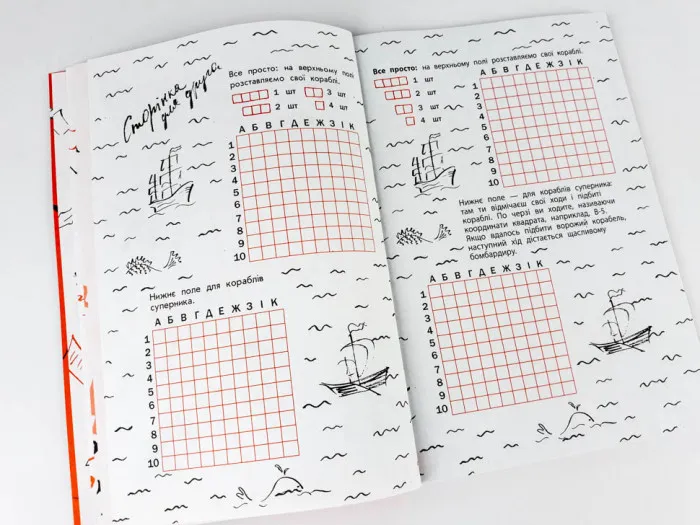 Сторінка
для друга
Все просто: на верхньому полі
розставляємо свої кораблі.
1 шт
3 шт
2 шт
4 шт
А Б В Г Д Е Ж З І К
1
2
3
4
5
6
7
8
9
10
Нижнє поле для кораблів
суперника.
А Б В Г Д Е Ж З І К
1
2
3
4
5
6
7
8
9
10
Все просто: на верхньому полі розставляємо свої кораблі.
1 шт
2 шт
3 шт
4 шт
А Б В Г Д Е Ж З І К
1
2
3
4
5
6
7
8
9
10
Нижнє поле — для кораблів суперника:
там ти відмічаєш свої ходи і підбиті
кораблі. По черзі ви ходите, називаючи
координати квадрата, наприклад, В-5.
Якщо вдалось підбити ворожий корабель,
наступний хід дістається щасливому
бомбардиру.
А Б В Г Д Е Ж З І К
1
2
3
4
5
6
7
8
9
10